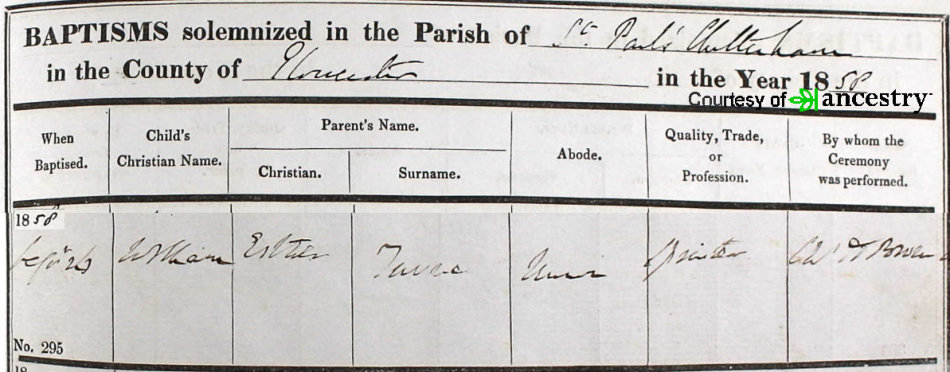 BAPTISMS solemnized in the Parish of St. Paul's Cheltenham
in the County of Gloucester in the Year 1858
Courtesy of ancestry
When Baptised.
Child's Christian Name.
Parent's Name.
Christian.
Surname.
Abode.
Quality, Trade, or Profession.
By whom the Ceremony was performed.
1858
William Esther Spinster
No. 295
18